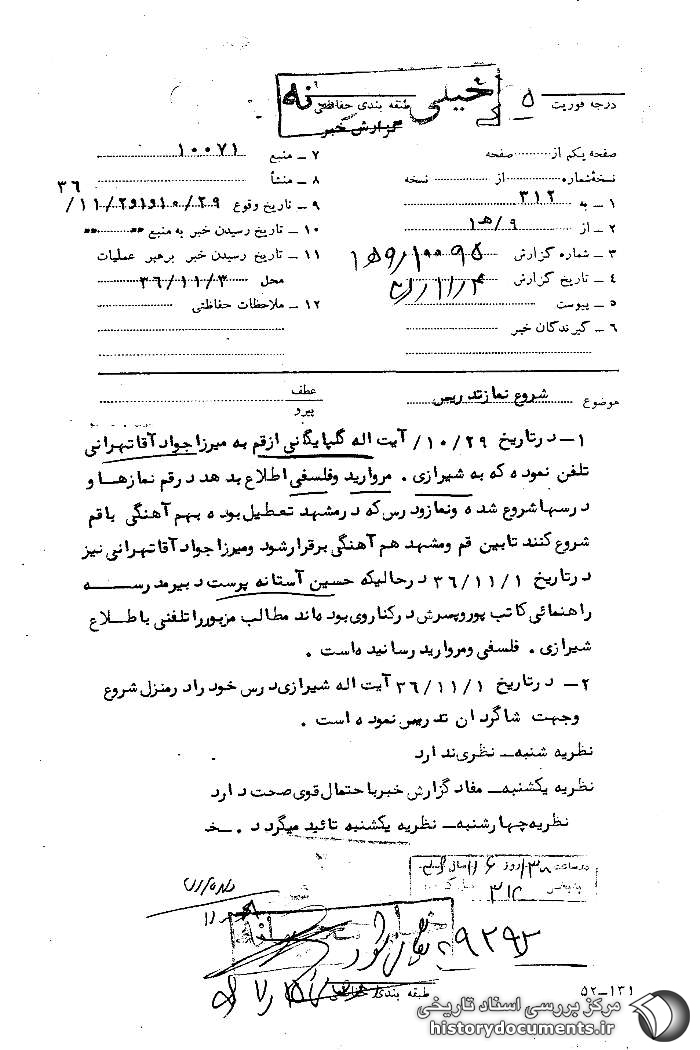 خیلی
درجه فوریت
طبقه بندی حفاظتی
گزارش خبر
صفحه یکم از صفحه
نسخه شماره از نسخه
۱ – به ۳۱۲
۲ – از ۹/هـ۱
۳ – شماره گزارش
۴ – تاریخ گزارش
۵ – پیوست
۶ – گیرندگان خبر
۷ – منبع ۱۰۰۷۱
۸ – منشأ
۹ – تاریخ وقوع
۱۰ – تاریخ رسیدن خبر به منبع
۱۱ – تاریخ رسیدن خبر برهبر عملیات
محل ۳۶/۱۱/۳
۱۲ – ملاحظات حفاظتی
موضوع شروع نماز تدریس
عطف
پیرو
۱ – درتاریخ ۱۰/۲۹/ آیت اله گلپایگانی ازقم به میرزا جواد آقا تهرانی
تلفن نموده که به شیرازی . مروارید وفلسفی اطلاع بدهد درقم نمازها و
درسها شروع شده ونمازودرس که درمشهد تعطیل بوده بهم آهنگی باقم
شروع کنند تابین قم ومشهد هم آهنگی برقرارشود ومیرزا جواد آقا تهرانی نیز
درتاریخ ۳۶/۱۱/۱ درحالیکه حسین آستانه پرست دبیرمدرسه
راهنمائی کاتب پوروپسرش درکناروی بوده اند مطالب مزبوررا تلفنی باطلاع
شیرازی . فلسفی ومروارید رسانیده است .
۲ – درتاریخ ۳۶/۱۱/۱ آیت اله شیرازی درس خود رادرمنزل شروع
وجهت شاگردان تدریس نموده است .
نظریه شنبه – نظری ندارد
نظریه یکشنبه – مفاد گزارش خبربا احتمال قوی صحت دارد
نظریه چهارشنبه – نظریه یکشنبه تائید میگردد . خ
طبقه بندی حفاظتی
۵۲–۱۳۱
مرکز بررسی اسناد تاریخی
historydocuments.ir